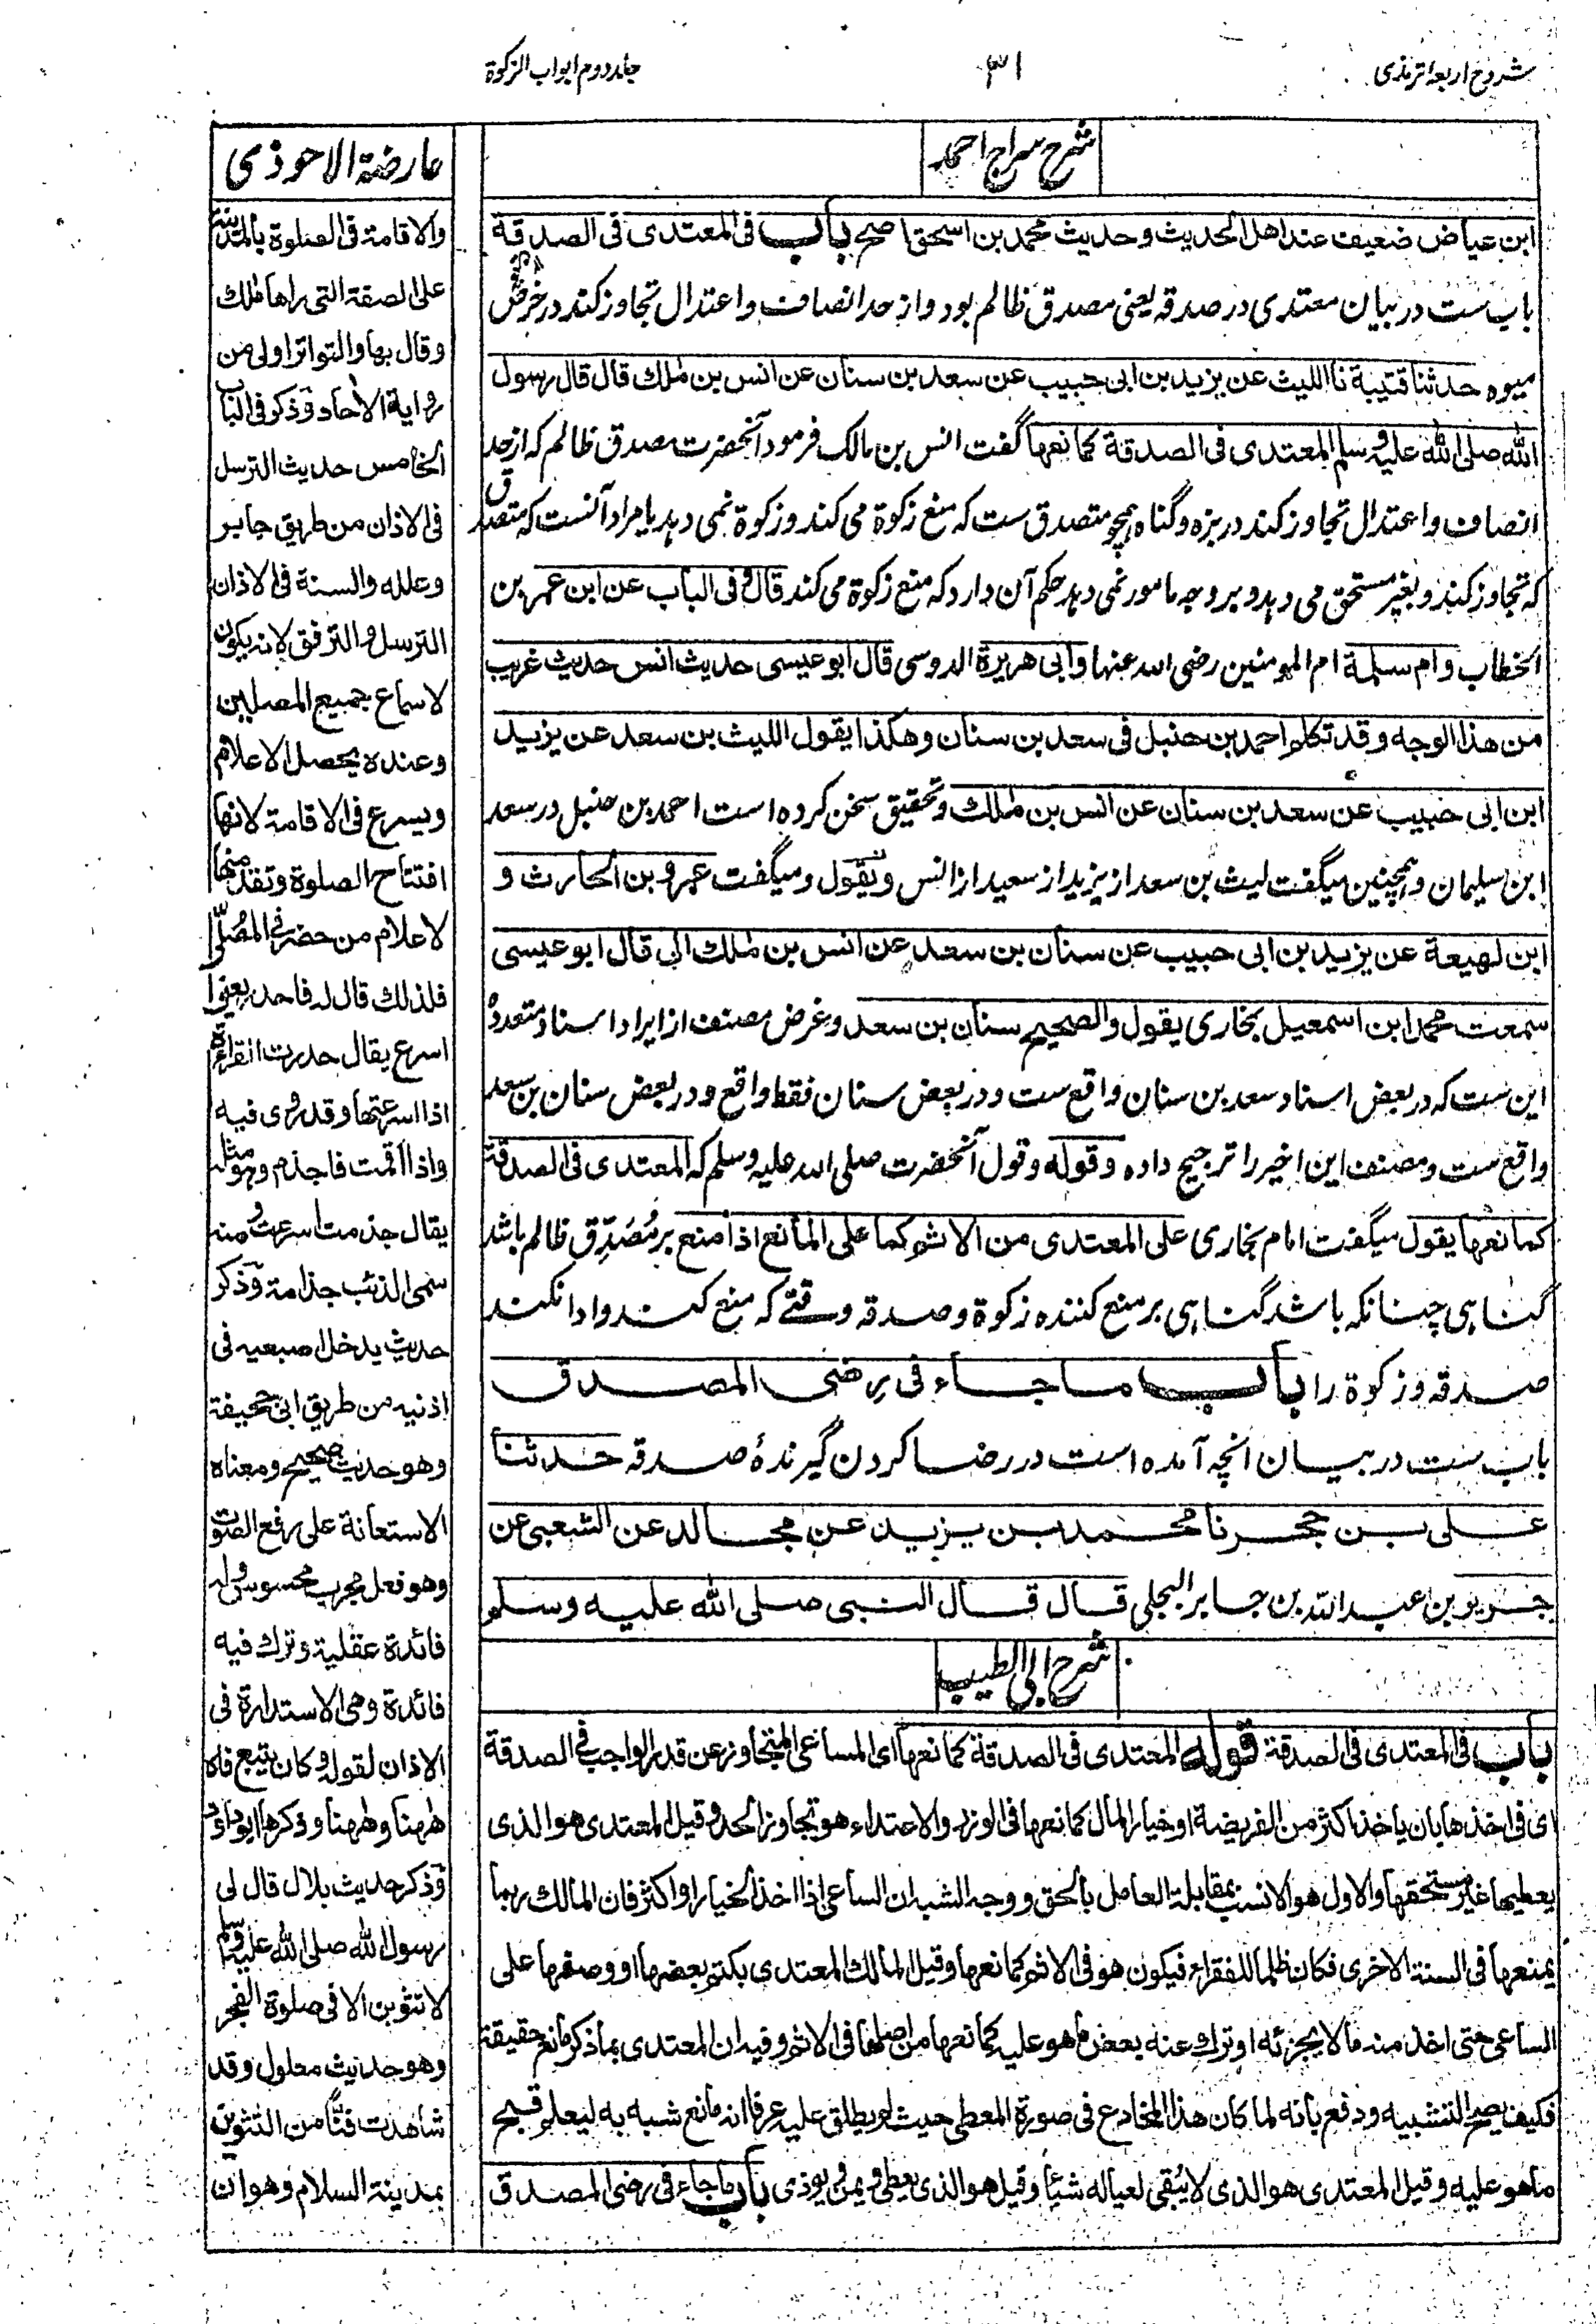 شروح اربعہ ترمذی
۳۱
جلد دوم ابواب الزکوۃ
شرح سراج احمد
ابن عیاض ضعیف عند اهل الحدیث وحدیث محمد بن اسحق اصح باب فی المعتدی فی الصدقة
باب ست در بیان معتدی در صدقہ یعنی مصدق ظالم بود و از حد انصاف و اعتدال تجاوز کند در خرص
میوہ حدثنا قتیبة نا اللیث عن یزید بن ابی حبیب عن سعد بن سنان عن انس بن مٰلک قال قال رسول
الله صلی الله علیه وسلم المعتدی فی الصدقة کمانعها گفت انس بن مالک فرمود آنحضرت مصدق ظالم کہ از حد
انصاف و اعتدال تجاوز کند در بزہ و گناہ ہمچو متصدق ست کہ منع زکوۃ می کند و زکوۃ نمی دہد یا مراد آنست کہ متصدق
کہ تجاوز کند و بغیر مستحق می دہد و بر وجہ مامور نمی دہد حکم آن دارد کہ منع زکوۃ می کند قال وفی الباب عن ابن عمر بن
الخطاب وام سلمة ام المومنین رضی اللہ عنہا وابی هریرة الدوسی قال ابو عیسی حدیث انس حدیث غریب
من هذا الوجه وقد تکلم احمد بن حنبل فی سعد بن سنان وهکذا یقول اللیث بن سعد عن یزید
ابن ابی حبیب عن سعد بن سنان عن انس بن مٰلک وتحقیق سخن کردہ است احمد بن حنبل در سعد
ابن سلیمان و ہمچنین میگفت لیث بن سعد از یزید از سعید از انس ویقول ومیگفت عمرو بن الحارث و
ابن لهیعة عن یزید بن ابی حبیب عن سنان بن سعد عن انس بن مٰلک الی قال ابو عیسی
سمعت محمد ابن اسمعیل بخاری یقول والصحیح سنان بن سعد وغرض مصنف از ایراد اسناد متعددہ
این ست کہ در بعض اسناد سعد بن سنان واقع ست و در بعض سنان فقط واقع و در بعض سنان بن سعد
واقع ست و مصنف این اخیر را ترجیح دادہ وقوله وقول آنحضرت صلی اللہ علیہ وسلم کہ المعتدی فی الصدقة
کمانعها یقول میگفت امام بخاری علی المعتدی من الاثم کما علی المانع اذا منع بر مُصَدِّق ظالم باشد
گناہی چنانکہ باشد گناہی بر منع کنندہ زکوۃ و صدقہ وقتے کہ منع کند و ادا نکند
صدقہ و زکوۃ را باب ما جاء فی رضی المصدق
باب ست در بیان انچہ آمدہ است در رضا کردن گیرندۂ صدقہ حدثنا
علی بن حجر نا محمد بن یزید عن مجالد عن الشعبی عن
جریر بن عبد اللہ بن جابر البجلی قال قال النبی صلی الله علیه وسلم
شرح ابی الطیب
باب فی المعتدی فی الصدقة قوله المعتدی فی الصدقة کمانعها ای الساعی المتجاوز عن قدر الواجب فی الصدقة
ای فی اخذها بان یاخذ اکثر من الفریضة او خیار المال کمانعها فی الوزر والاعتداء هو تجاوز الحد وقیل المعتدی هو الذی
یعطیها غیر مستحقها والاول هو الانسب بمقابلة العامل بالحق ووجه الشبه ان الساعی اذا اخذ الخیار او اکثر فان المالک ربما
یمنعها فی السنة الاخری فکان ظلما للفقراء فیکون هو فی الاثم کمانعها وقیل المالک المعتدی بکتم بعضها او وصفها علی
الساعی حتی اخذ منه ما لا یجزئه او ترک عنه بعض ما هو علیه کمانعها من اصلها فی الاثم وفیه ان المعتدی بما ذکر مانع حقیقة
فکیف یصح التشبیه ودفع بانه لما کان هذا المخادع فی صورة المعطی حیث لم یطلق علیه عرفا انه مانع شبه به لیعلم قبیح
ما هو علیه وقیل المعتدی هو الذی لا یُبقی لعیاله شیئا وقیل هو الذی یعطی ویمن ویوذی باب ما جاء فی رضی المصدق
عارضة الاحوذی
والاقامة فی الصلوة بالمدینة
علی الصفة التی راها مٰلک
وقال بها والتواتر اولی من
روایة الاحاد وذکر فی الباب
الخامس حدیث الترسل
فی الاذان من طریق جابر
وعلله والسنة فی الاذان
الترسل والترفق لانه یکون
لاسماع جمیع المصلین
وعنده یحصل الاعلام
ویسرع فی الاقامة لانها
افتتاح الصلوة وتقدمتها
لاعلام من حضر فی المصلّی
فلذلک قال له فاحدر یعنی
اسرع یقال حدرت القراءة
اذا اسرعتها وقد روی فیه
واذا اقمت فاجذم وهو مثله
یقال جذمت اسرعت ومنه
سمی الذئب جذامة وذکر
حدیث یدخل اصبعیه فی
اذنیه من طریق ابی جحیفة
وهو حدیث صحیح ومعناه
الاستعانة علی رفع الصوت
وهو فعل مجرب محسوس وله
فائدة عقلیة وترک فیه
فائدة وهی الاستدارة فی
الاذان لقوله وکان یتبع فاه
ههنا وههنا وذکرها ابوداود
وذکر حدیث بلال قال لی
رسول الله صلی الله علیه وسلم
لا تثوبن الا فی صلوة الفجر
وهو حدیث معلول وقد
شاهدت فنًّا من التثویب
بمدینة السلام وهو ان